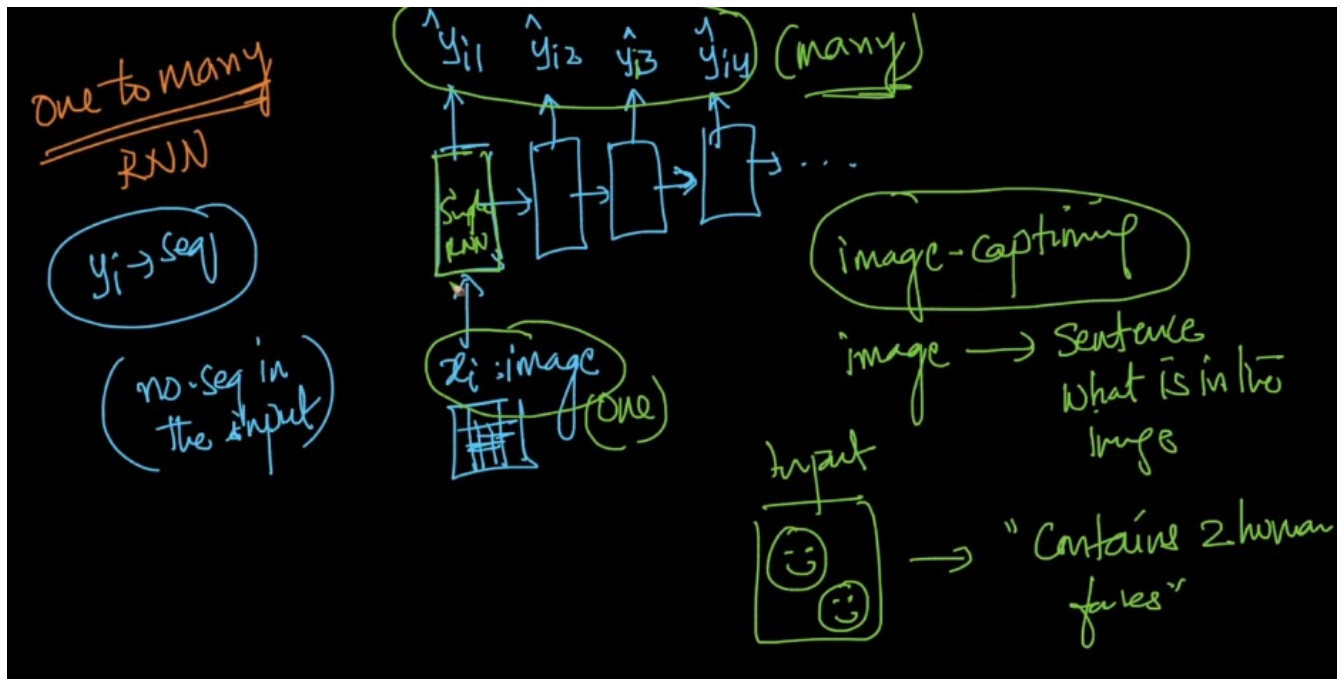 one to many
RNN
yi → seq
(no-seq in
the input)
ŷi1 ŷi2 ŷi3 ŷi4 (many)
Simple
RNN
...
xi : image
(one)
image-captioning
image → Sentence
what is in the
image
Input
→ "Contains 2 human
faces"